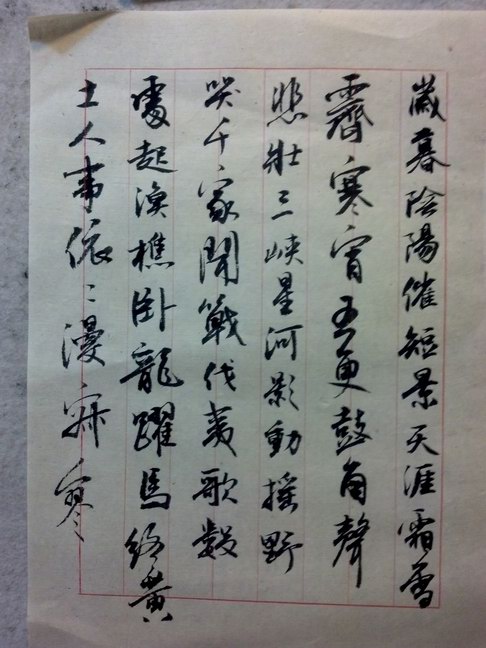 歲暮陰陽催短景天涯霜雪
霽寒宵五更鼓角聲
悲壯三峽星河影動搖野
哭千家聞戰伐夷歌數
處起漁樵卧龍躍馬終黃
土人事依〻漫寂寥